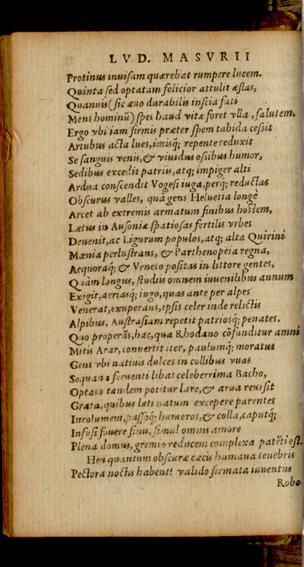 LVD. MASVRII
Protinus inuisam quærebat rumpere lucem.
Quinta sed optatam felicior attulit æstas,
Quanuis (sic æuo durabilis inscia fati
Mens hominũ) spes haud vitæ foret vlla, salutem.
Ergo vbi iam firmis præter spem tabida cessit
Artubus acta lues, imisq; repente reduxit
Se sanguis venis, & viuidus ossibus humor,
Sedibus excedit patriis, atq; impiger alti
Ardua conscendit Vogesi iuga, perq; reductas
Obscurus valles, qua gens Heluetia longè
Arcet ab extremis armatum finibus hostem,
Lætus in Ausoniæ spatiosas fertilis vrbes
Deuenit, ac Ligurum populos, atq; alta Quirini
Mœnia perlustrans, & Parthenopeia regna,
Aequoraq; & Veneto positas in littore gentes,
Quàm longus, studiis omnem iuuenilibus annum
Exigit, aeriasq; iugo, quas ante per alpes
Venerat, exuperans, ipsis celer inde relictis
Alpibus, Austrasiam repetit patriosq; penates.
Quo properãs, hac, qua Rhodano cõfunditur amni
Mitis Arar, conuertit iter, paulumq; moratus
Gens vbi natiuis dulces in collibus vuas
Sequana feruenti libat celeberrima Bacho,
Optato tandem potitur Lare, & arua reuisit
Grata, quibus læti natum excepere parentes
Incolumem, passiq; humeros, & colla, caputq;
Infusi fouere sinu, simul omnis amore
Plena domus, gremio reducem complexa patẽti est.
Heu quantum obscuræ cæcis humana tenebris
Pectora noctis habent! valido firmata iuuentus
Robo-